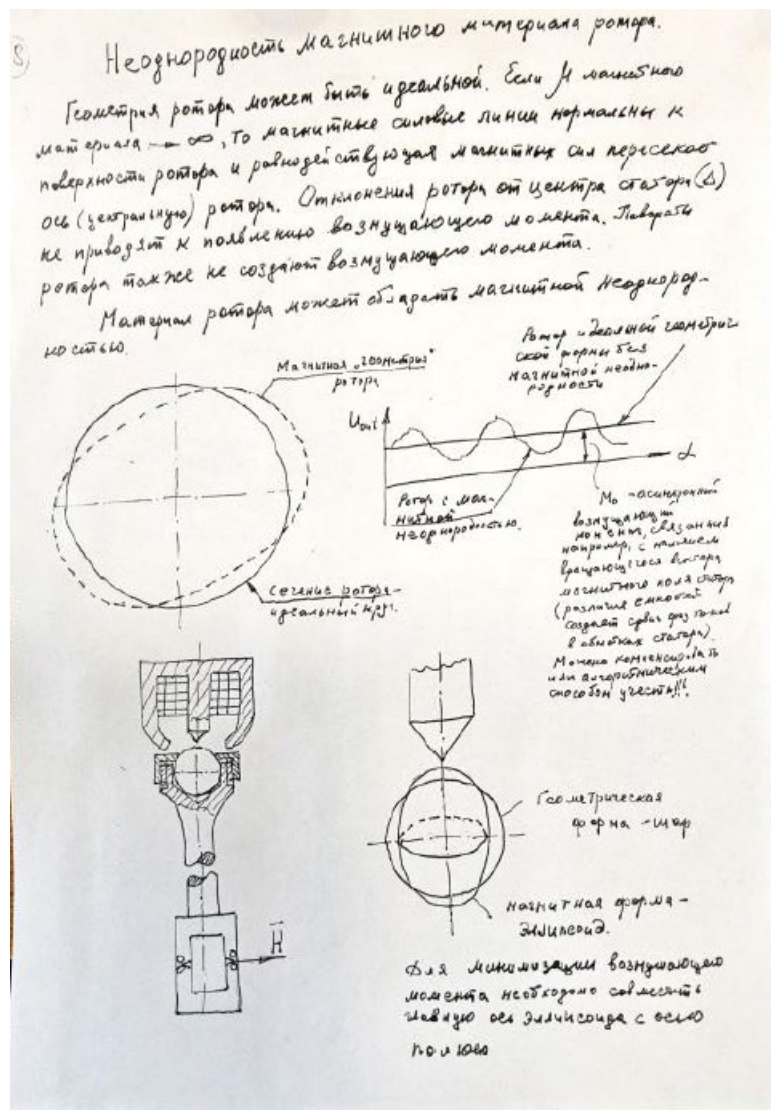 8
Неоднородность магнитного материала ротора.
Геометрия ротора может быть идеальной. Если μ магнитного
материала → ∞, то магнитные силовые линии нормальны к
поверхности ротора и равнодействующая магнитных сил пересекает
ось (центральную) ротора. Отклонения ротора от центра статора (Δ)
не приводят к появлению возмущающего момента. Повороты
ротора также не создают возмущающего момента.
Материал ротора может обладать магнитной неоднород-
ностью.
Магнитная "геометрия"
ротора
Сечение ротора-
идеальный круг.
Ротор идеальной геометрич
ской формы без
магнитной неодно-
родности
Uout
α
Ротор с маг-
нитной
неоднородностью.
M₀ - асинхронный
возмущающий
момент, связанный
например, с наличием
вращающегося вектора
магнитного поля статора
(различие емкостей
создает сдвиг фаз токов
в обмотках статора).
Можно компенсировать
или алгоритмическим
способом учесть!!!
H
Геометрическая
форма - шар
Магнитная форма -
эллипсоид.
Для минимизации возмущающего
момента необходимо совместить
главную ось эллипсоида с осью
полюса